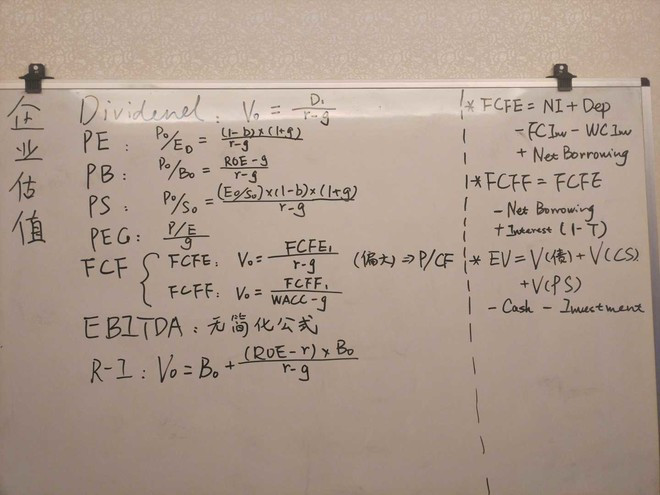 企业估值
Dividend: V₀ = D₁/(r-g)
PE: P₀/E₀ = (1-b)×(1+g)/(r-g)
PB: P₀/B₀ = (ROE-g)/(r-g)
PS: P₀/S₀ = (E₀/S₀)×(1-b)×(1+g)/(r-g)
PEG: (P/E)/g
FCF { FCFE: V₀ = FCFE₁/(r-g) (偏大) ⇒ P/CF
FCFF: V₀ = FCFF₁/(WACC-g)
EBITDA: 无简化公式
R-I: V₀ = B₀ + (ROE-r)×B₀/(r-g)
* FCFE = NI + Dep
- FCInv - WCInv
+ Net Borrowing
* FCFF = FCFE
- Net Borrowing
+ Interest (1-T)
* EV = V(债) + V(CS)
+ V(PS)
- Cash - Investment